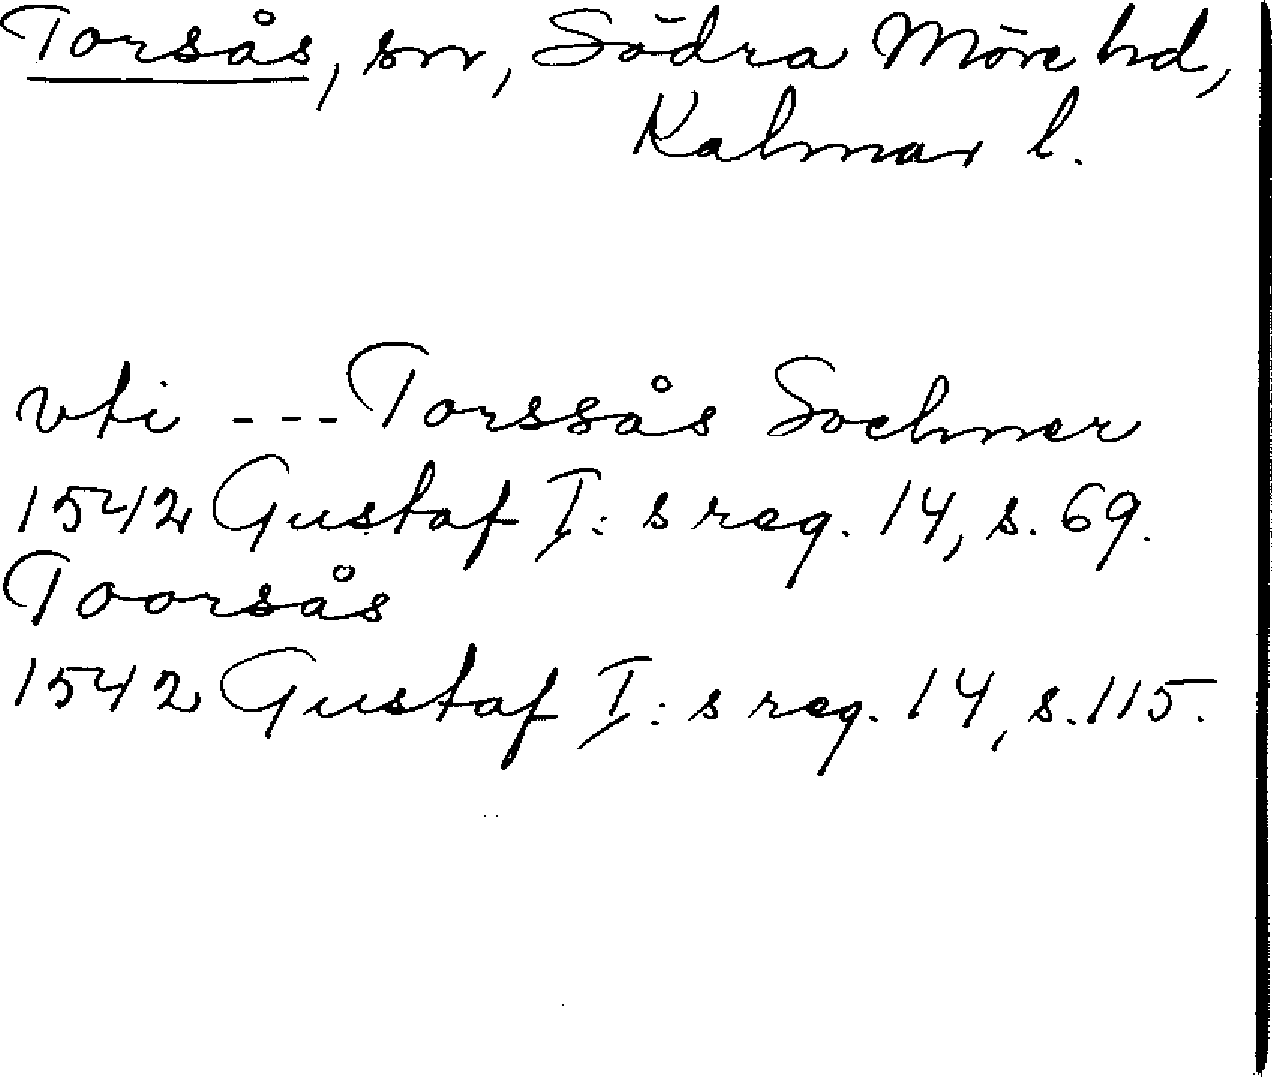 Torsås, sn, Södra Möre hd,
Kalmar l.
vti --- Torssås Sochner
1542 Gustaf I:s reg. 14, s. 69.
Toorsås
1542 Gustaf I:s reg. 14, s. 115.